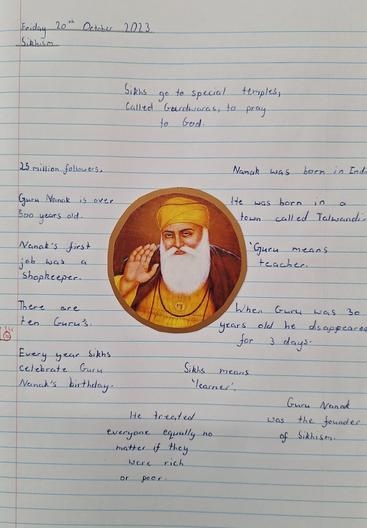 Friday 20th October 2023
Sikhism
Sikhs go to special temples,
Called Gurdwaras, to pray
to God.
25 million followers.
Nanak was born in Indi
Guru Nanak is over
500 years old.
He was born in a
town called Talwandi.
Nanak's first
job was a
Shopkeeper.
'Guru means
teacher.
There are
ten Guru's.
When Guru was 30
years old he disappeare
for 3 days.
Every year Sikhs
celebrate Guru
Nanak's birthday.
Sikhs means
'learner'.
Guru Nanak
was the founder
of Sikhism.
He treated
everyone equally no
matter if they
were rich
or poor.